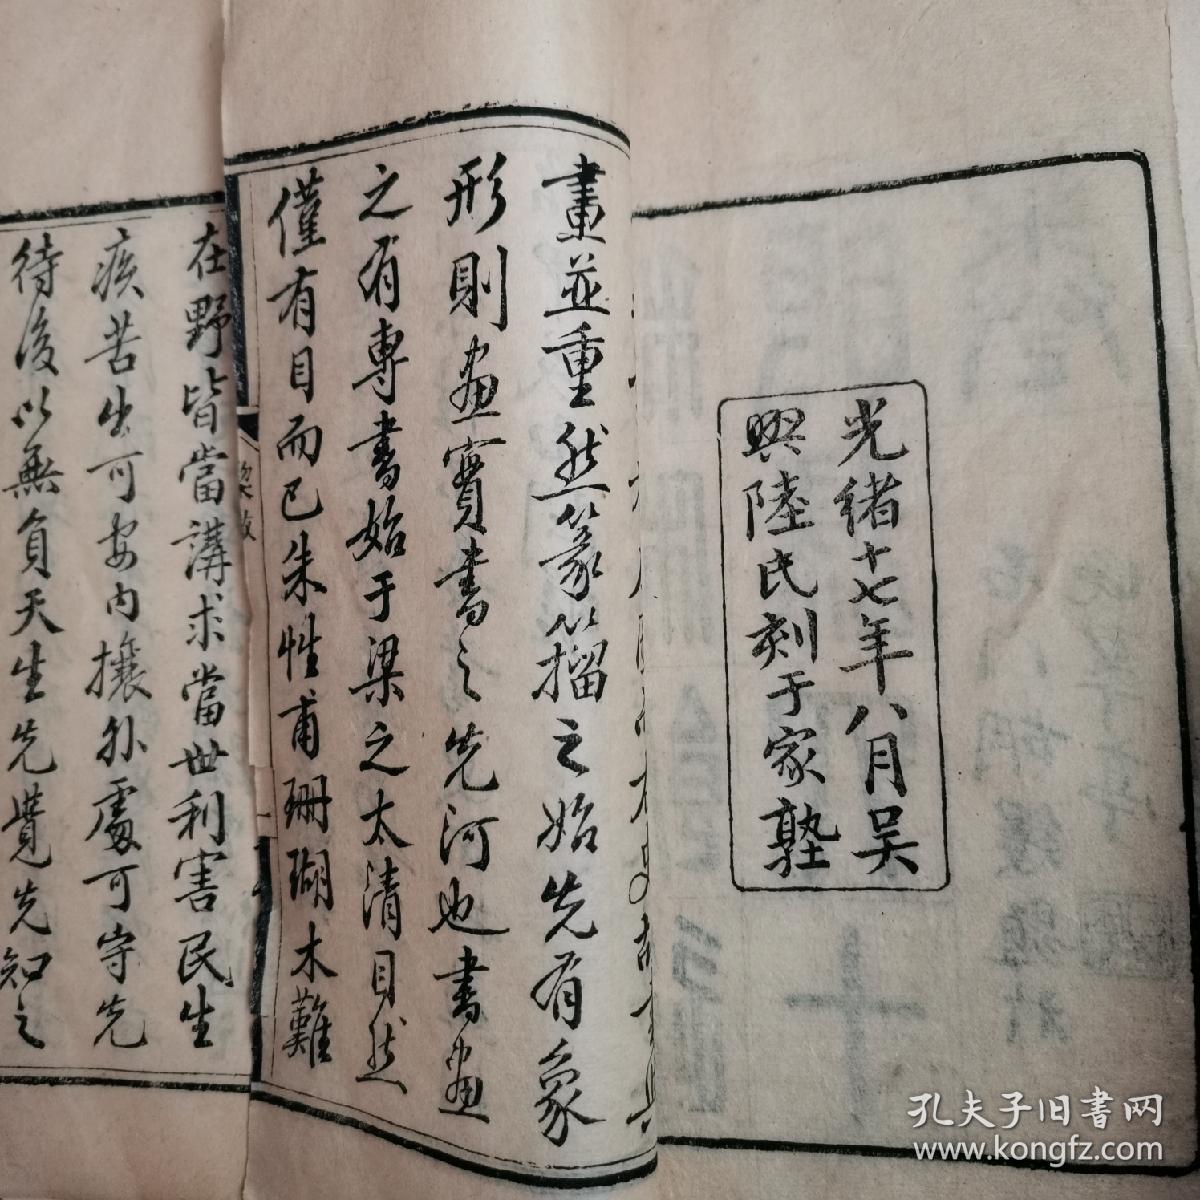 光緒十七年八月吳
興陸氏刻于家塾
畫並重然篆籀之始先有象
形則畫實書之先河也書畫
之有專書始于梁之太清目然
僅有目而已朱性甫珊瑚木難
在野皆當講求當世利害民生
疾苦生可安內攘外處可守先
待後以無負天生先覺先知之
孔夫子旧書网
www.kongfz.com